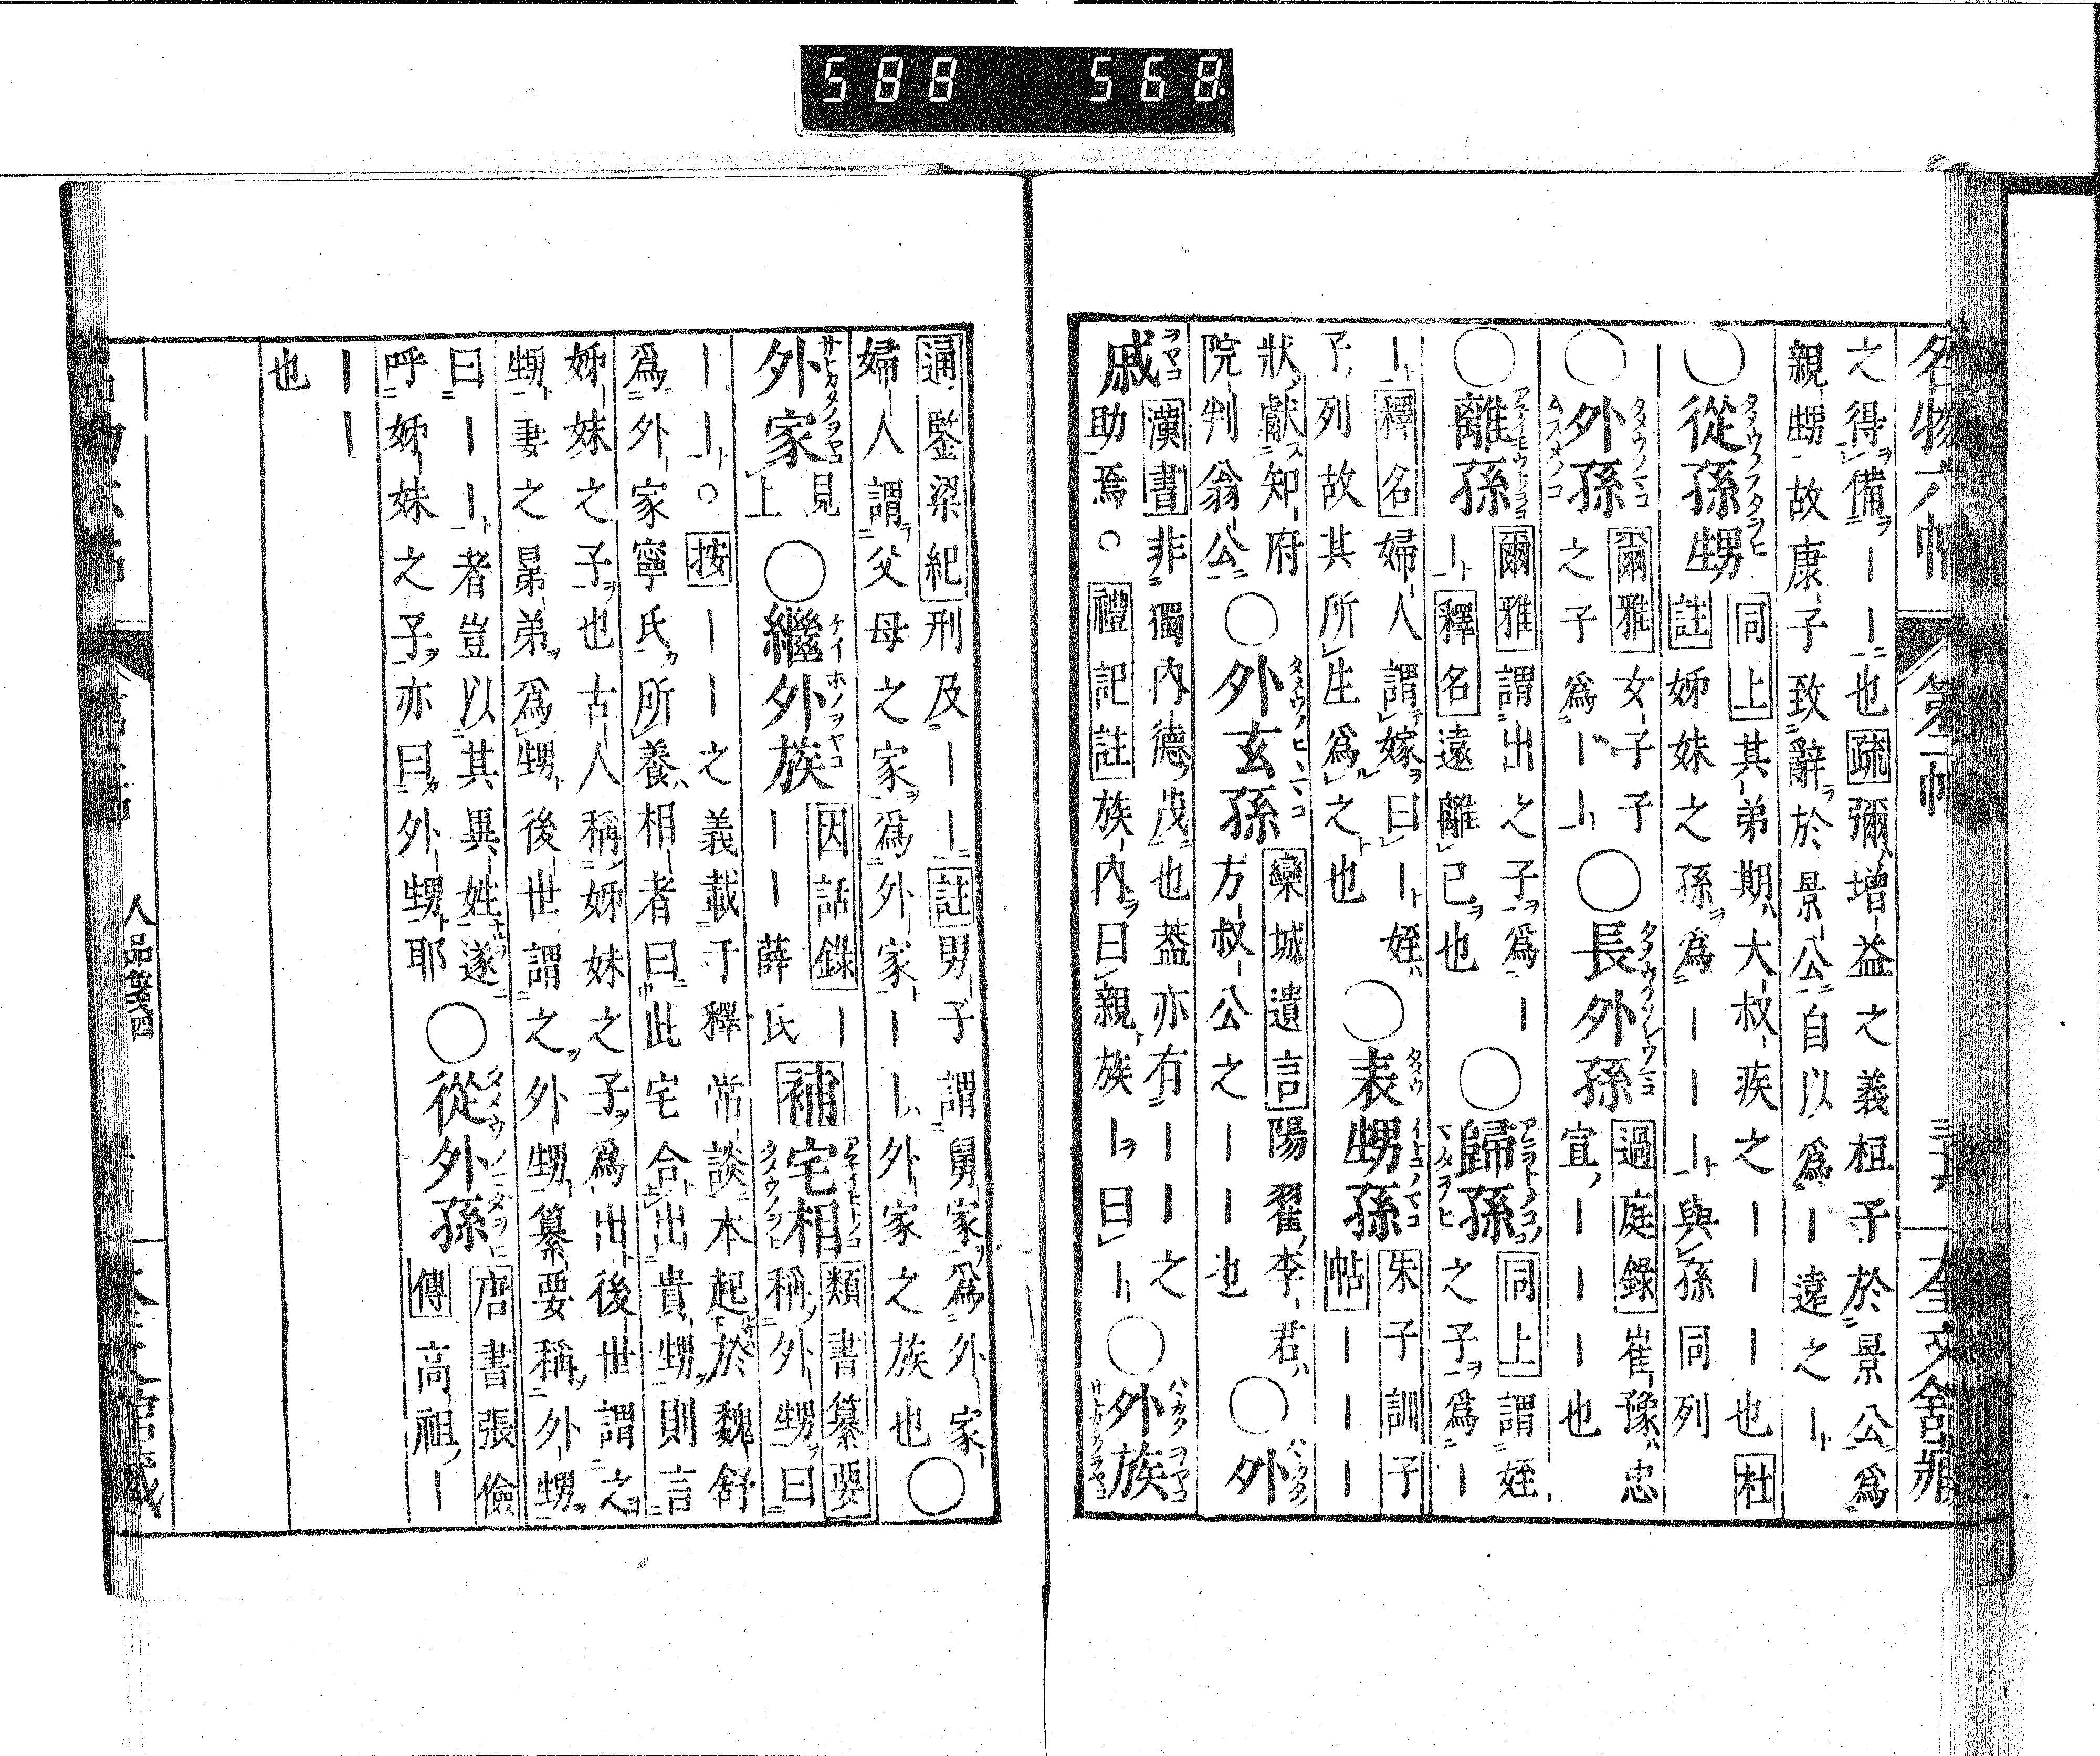 588 568
名物六帖 第二帖 奎文舘藏
之得備ーー也疏彌増益之義桓子於景公爲
親甥故康子致辭於景公自以爲ー遠之ー
○從孫甥 同上其弟期大叔疾之ーーー也杜
註姊妹之孫爲ーーー與孫同列
○外孫 爾雅女子子
之子爲ーー ○長外孫 過庭錄崔豫忠
宣ーーーー也
○離孫 爾雅謂出之子爲ー
ー釋名遠離已也 ○歸孫 同上謂姪
之子爲ー
ー釋名婦人謂嫁曰ー姪
子列故其所生爲之也 ○表甥孫 朱子訓子
帖ーーーー
狀獻知府
院判翁公 ○外玄孫 欒城遺言陽翟李君
方叔公之ーーー也 ○外
戚 漢書非獨內德茂也蓋亦有ーー之
助焉○禮記註族內曰親族ー曰ー ○外族
通鑒梁紀刑及ーー註男子謂舅家爲外家
婦人謂父母之家爲外家ーー外家之族也 ○
外家 見上 ○繼外族 因話錄ー
ーー薛氏 補宅相 類書纂要
稱外甥曰
ーー○按ーーー之義載于釋常談本起於魏舒
爲外家寧氏所養相者曰此宅合出貴甥則言
姊妹之子也古人稱姊妹之子爲出後世謂之
甥妻之晜弟爲甥後世謂之外甥纂要稱外甥
曰ーー者豈以其異姓遂
呼姊妹之子亦曰外甥耶 ○從外孫 唐書張儉
傳高祖ー
ーー
也
人品箋四